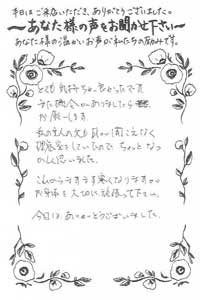 本日はご来店いただき、ありがとうございました。
〜あなた様の声をお聞かせ下さい〜
あなた様の温かいお声が私たちの励みです。
とても気持ちが良かったです
また機会がありましたら
お願いします。
私の主人の父が耳が聞こえなく
していたので ちょっとなつ
かしく思いました。
これからますます寒くなりますが
お身体を大切に頑張って下さい。
今日は、ありがとうございました。